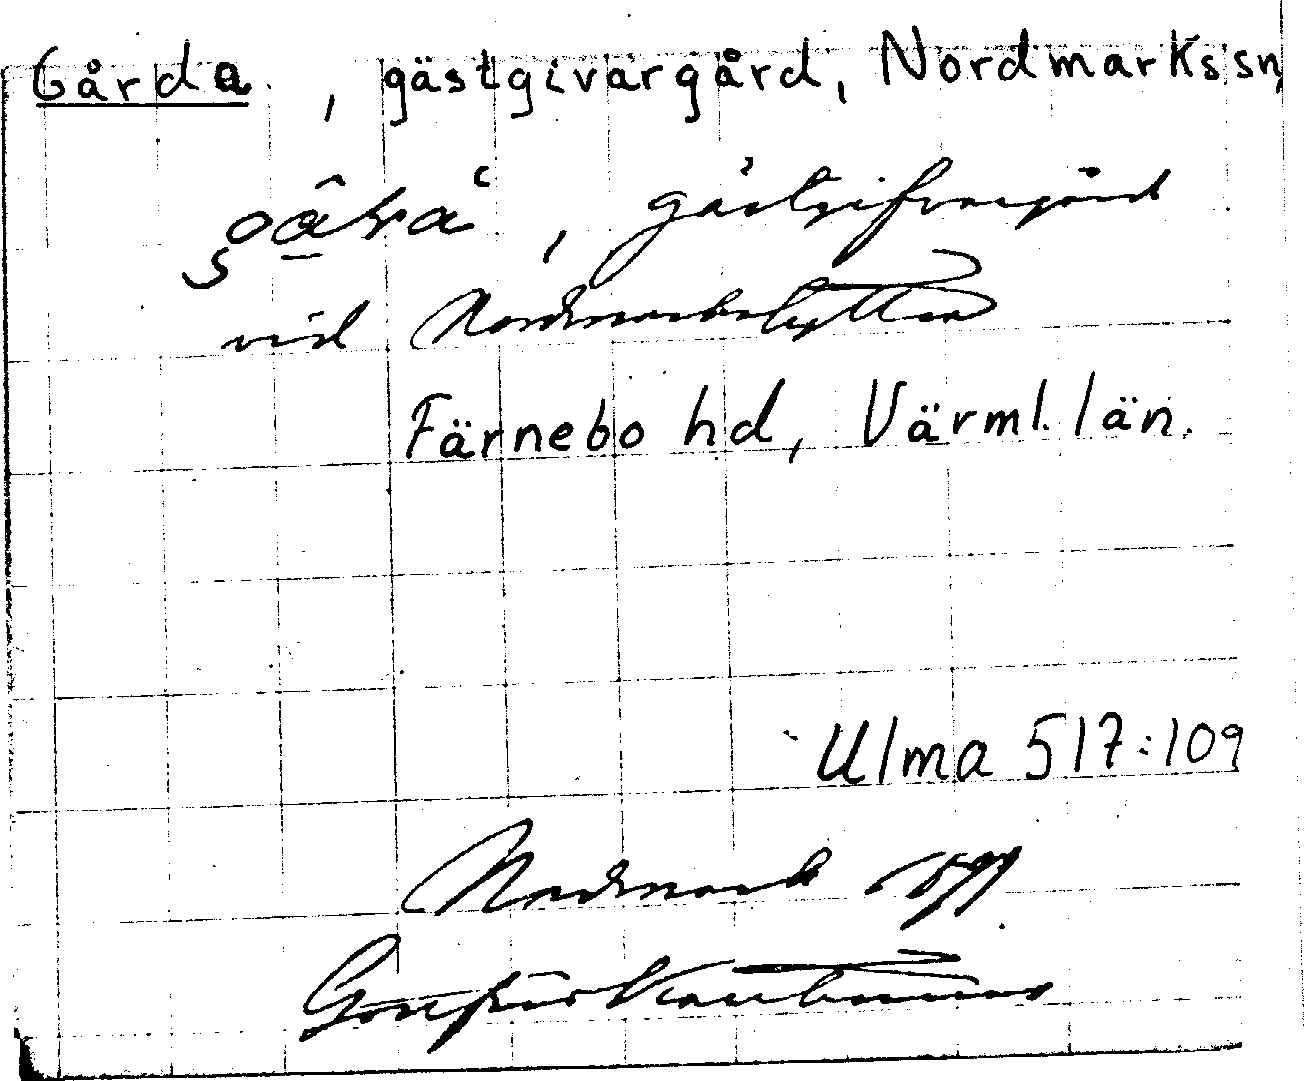 Gårda , gästgivargård, Nordmarks sn
, gästgifvargård
vid Nordmarkshyttan
Färnebo hd, Värml. län.
Ulma 517:109
Nordmark 1899.